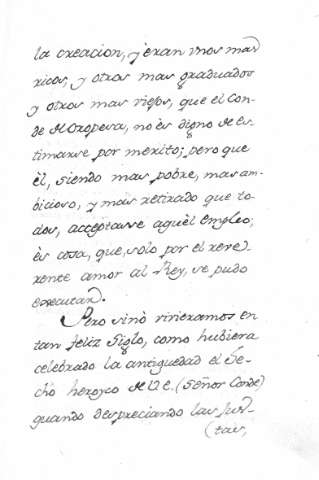 la creacion, y eran unos mas
ricos, y otros mas graduados
y otros mas viejos, que el Con-
de de Oropesa, no ès digno de es-
timarse por merito; pero que
èl, siendo mas pobre, mas am-
bicioso, y mas retirado que to-
dos, acceptasse aquèl empleo;
ès cosa, que, solo por el reve-
rente amor al Rey, se pudo
executar.
Pero sinò vivieramos en
tan feliz Siglo, como hubiera
celebrado la antiguedad el he-
chò heroyco de V.E. (Señor Conde)
quando despreciando las jus-
(tas,